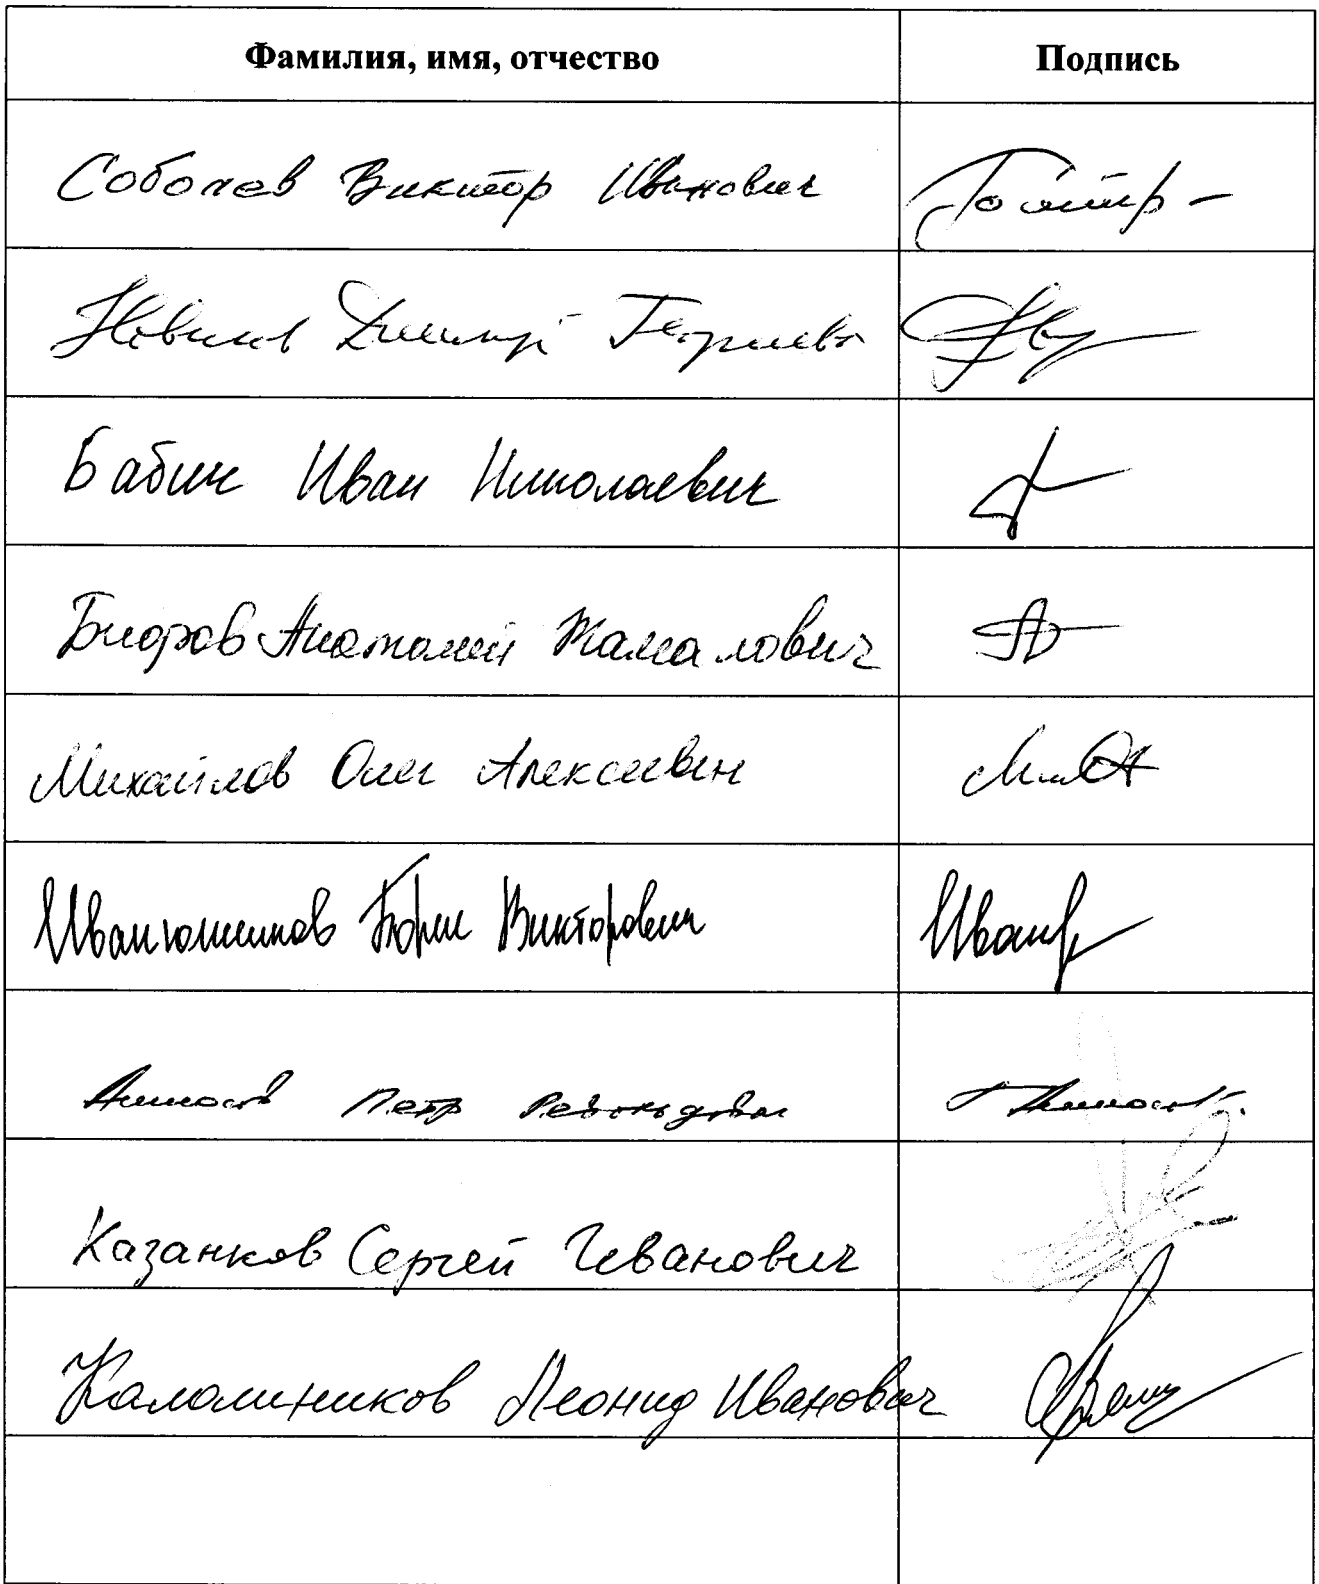 Фамилия, имя, отчество Подпись
Соболев Виктор Иванович
Новиков Дмитрий Георгиевич
Бабич Иван Николаевич
Бифов Анатолий Жамалович
Михайлов Олег Алексеевич
Иванюженков Борис Викторович
Аммосов Петр Револьдович
Казанков Сергей Иванович
Каламников Леонид Иванович